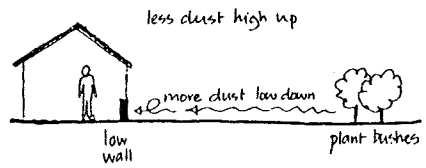 less dust high up
more dust low down
low
wall
plant bushes